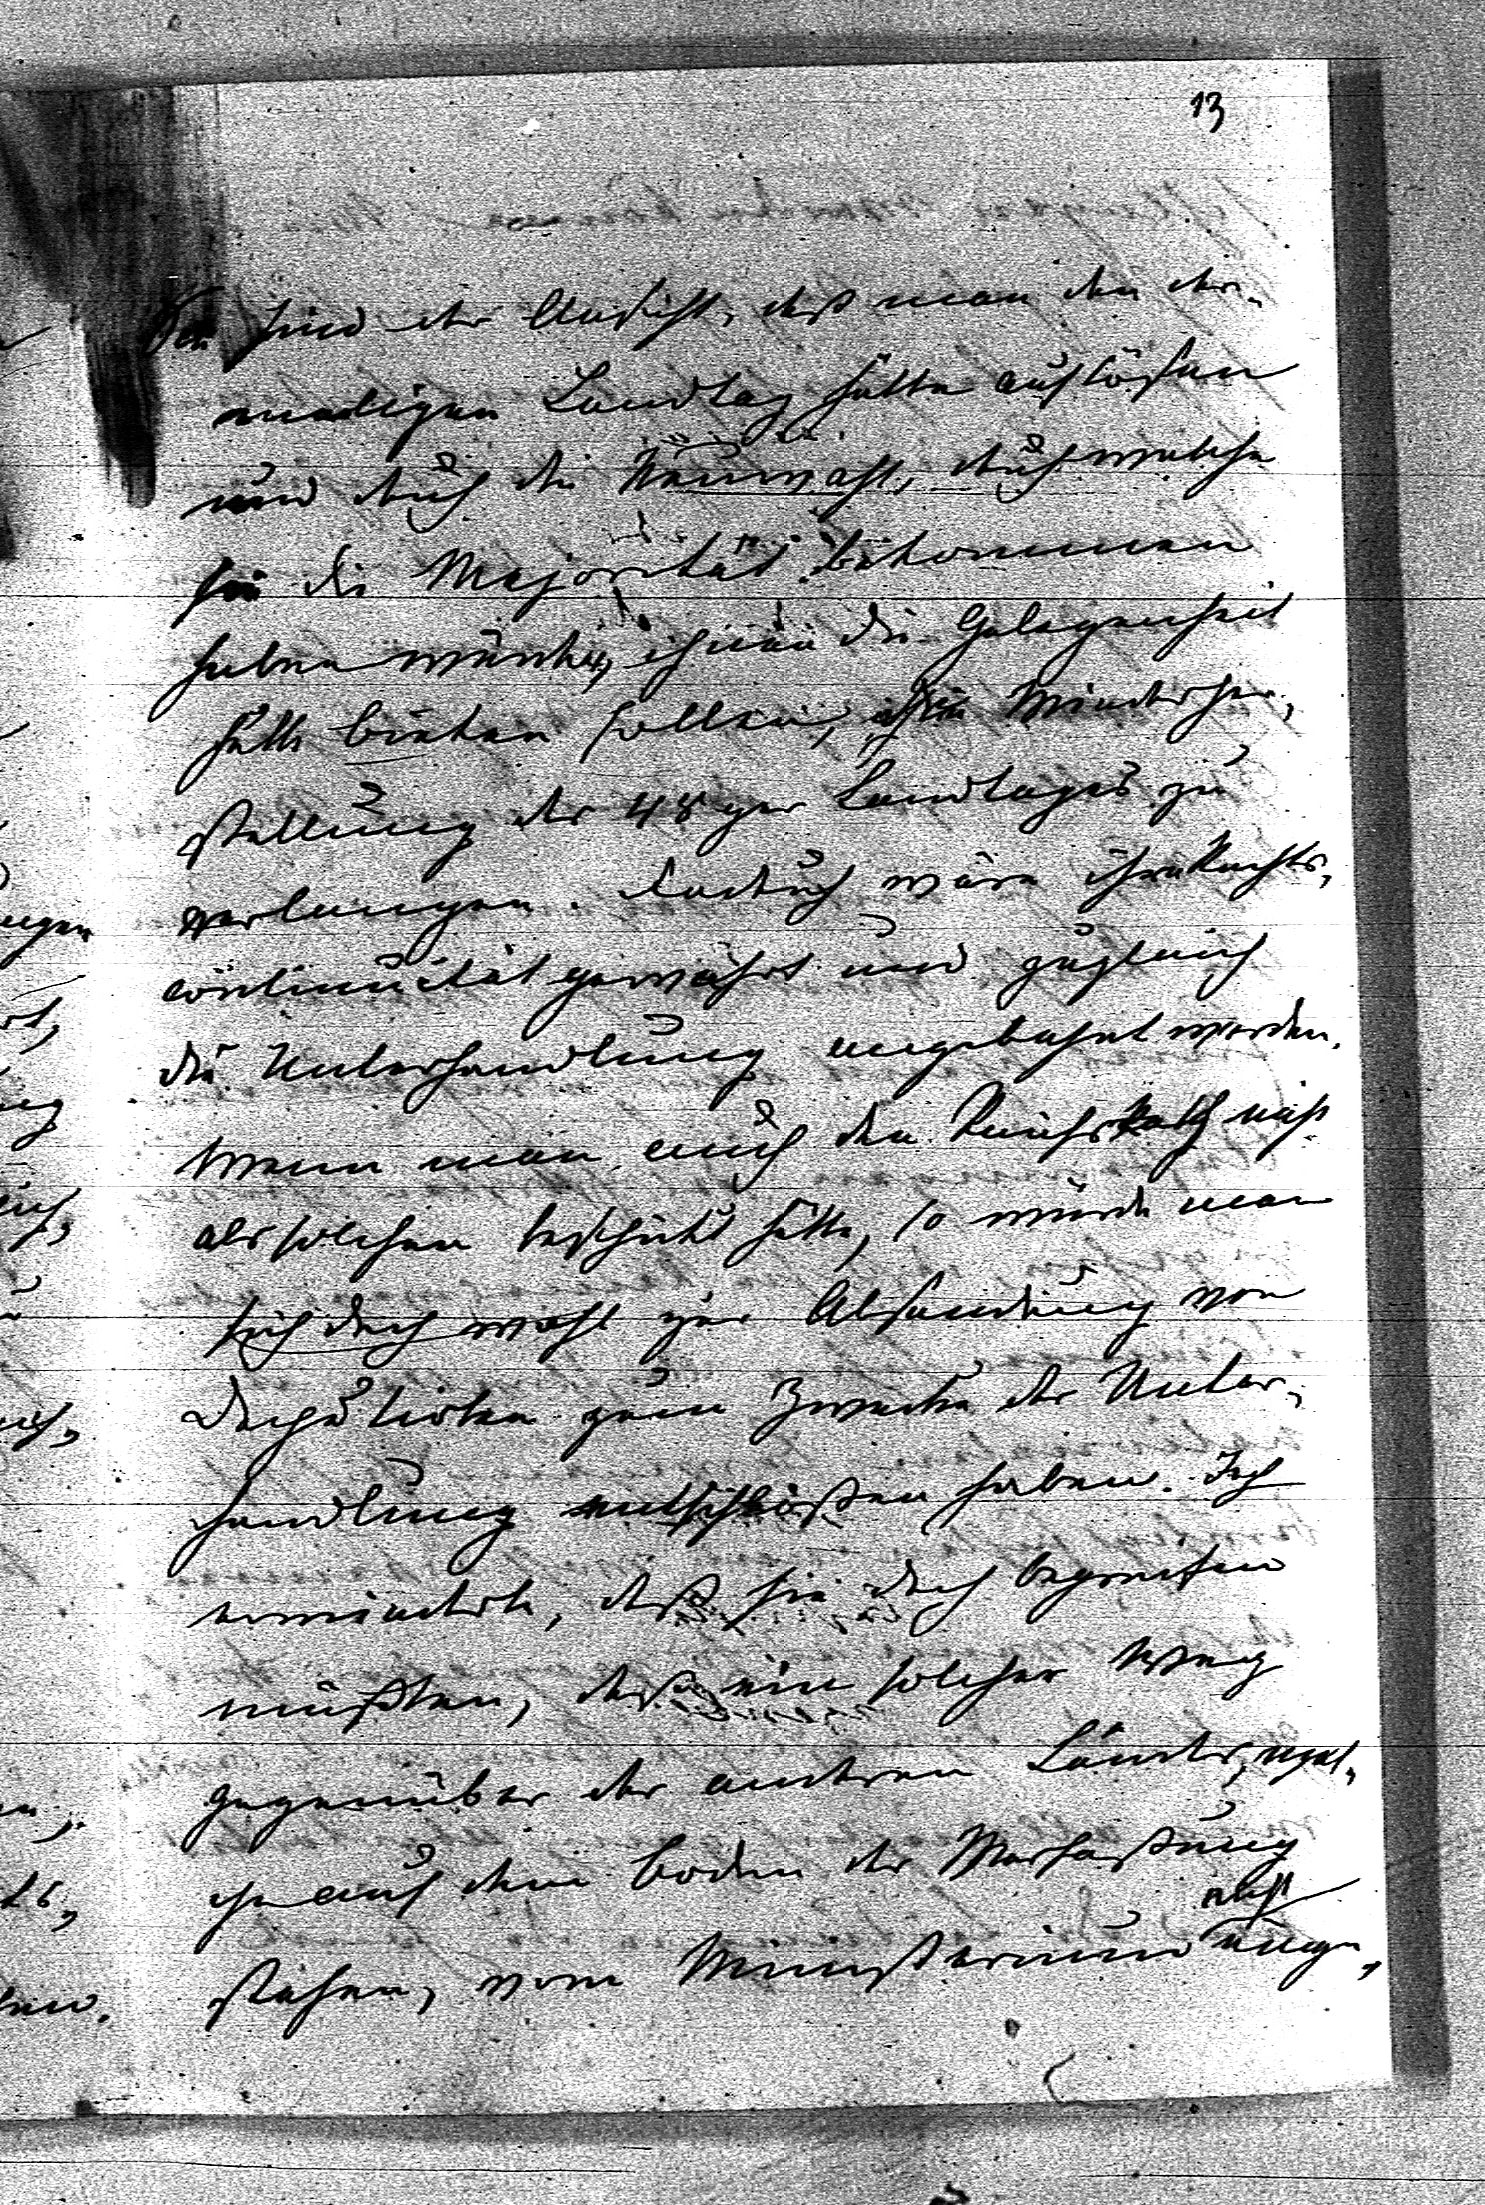 13
Sie sind der Ansicht, daß man den da-
maligen Landtag hätte auflösen
und durch die Neuwahl, durch welche
sie die Majorität bekommen
haben würden, ihnen die Gelegenheit
hätte bieten sollen, die Wiederher-
stellung des 48ger Landtages zu
verlangen. Dadurch wäre ihre Rechts-
continuität gewahrt und zugleich
die Unterhandlung angebahnt worden.
Wenn man auch den Reichsrath nicht
als solchen beschickt hätte, so würde man
sich doch wohl zur Absendung von
Deputirten zum Zwecke der Unter-
handlung entschloßen haben. Ich
erwiederte, daß sie doch begreifen
müßten, daß ein solcher Weg
gegenüber der anderen Länder, wel-
che auf dem Boden der Verfaßung
nicht
stehen, vom Ministerium einge-